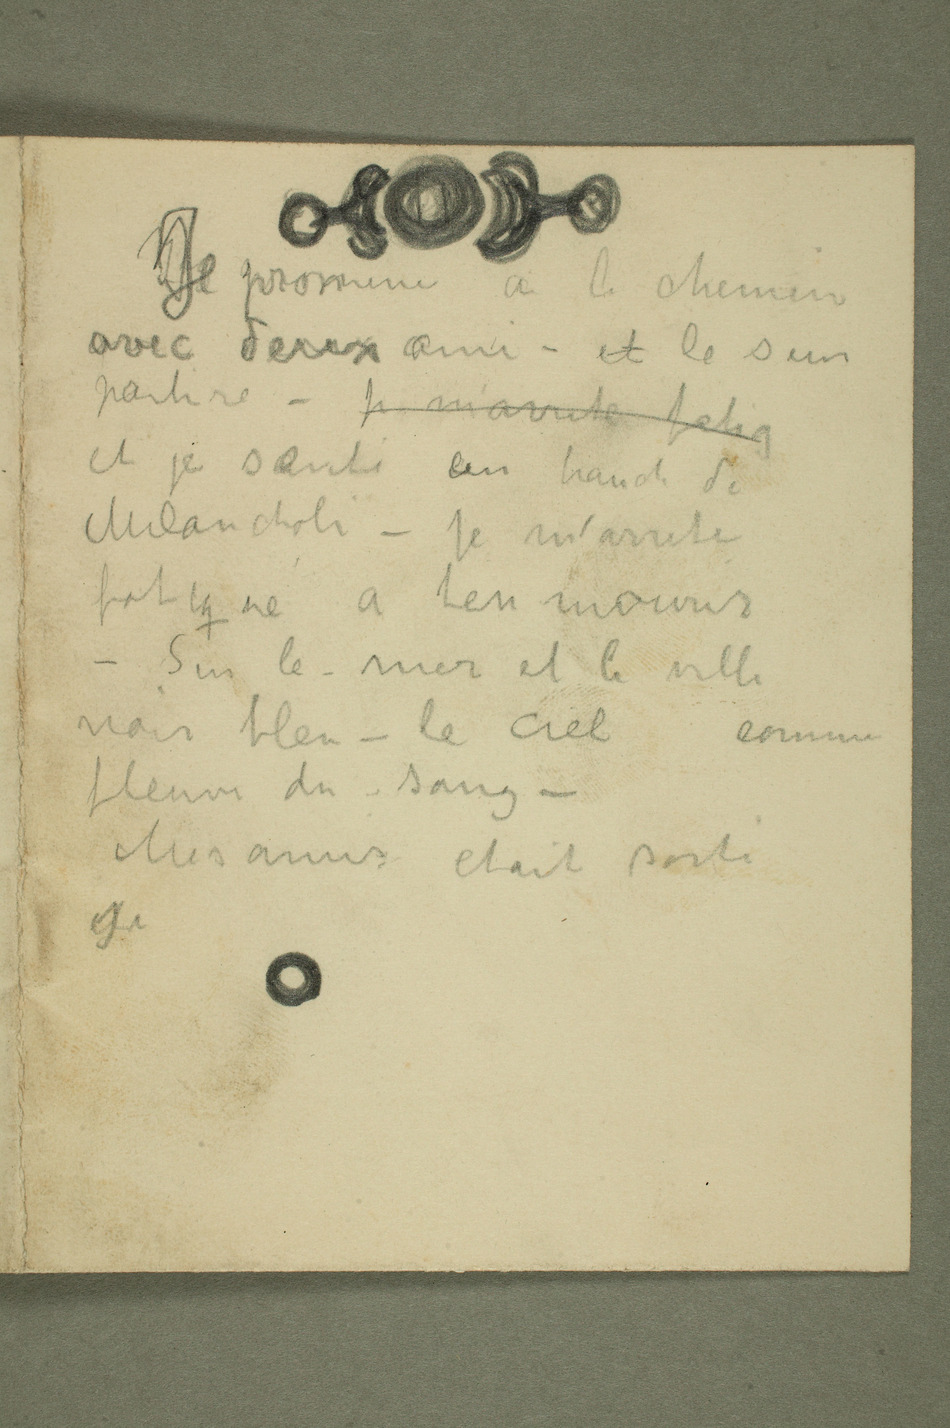 Je promene a le chemin
avec deux ami – et le sun
partire – je m'arrete fatig
et je senti un de
Melancholi – je m'arrete
fatigué a ten mourir
– Sur le mer et le ville
noir bleu – le ciel comme
fleuve du sang –
Mes amis etait sorti
Je